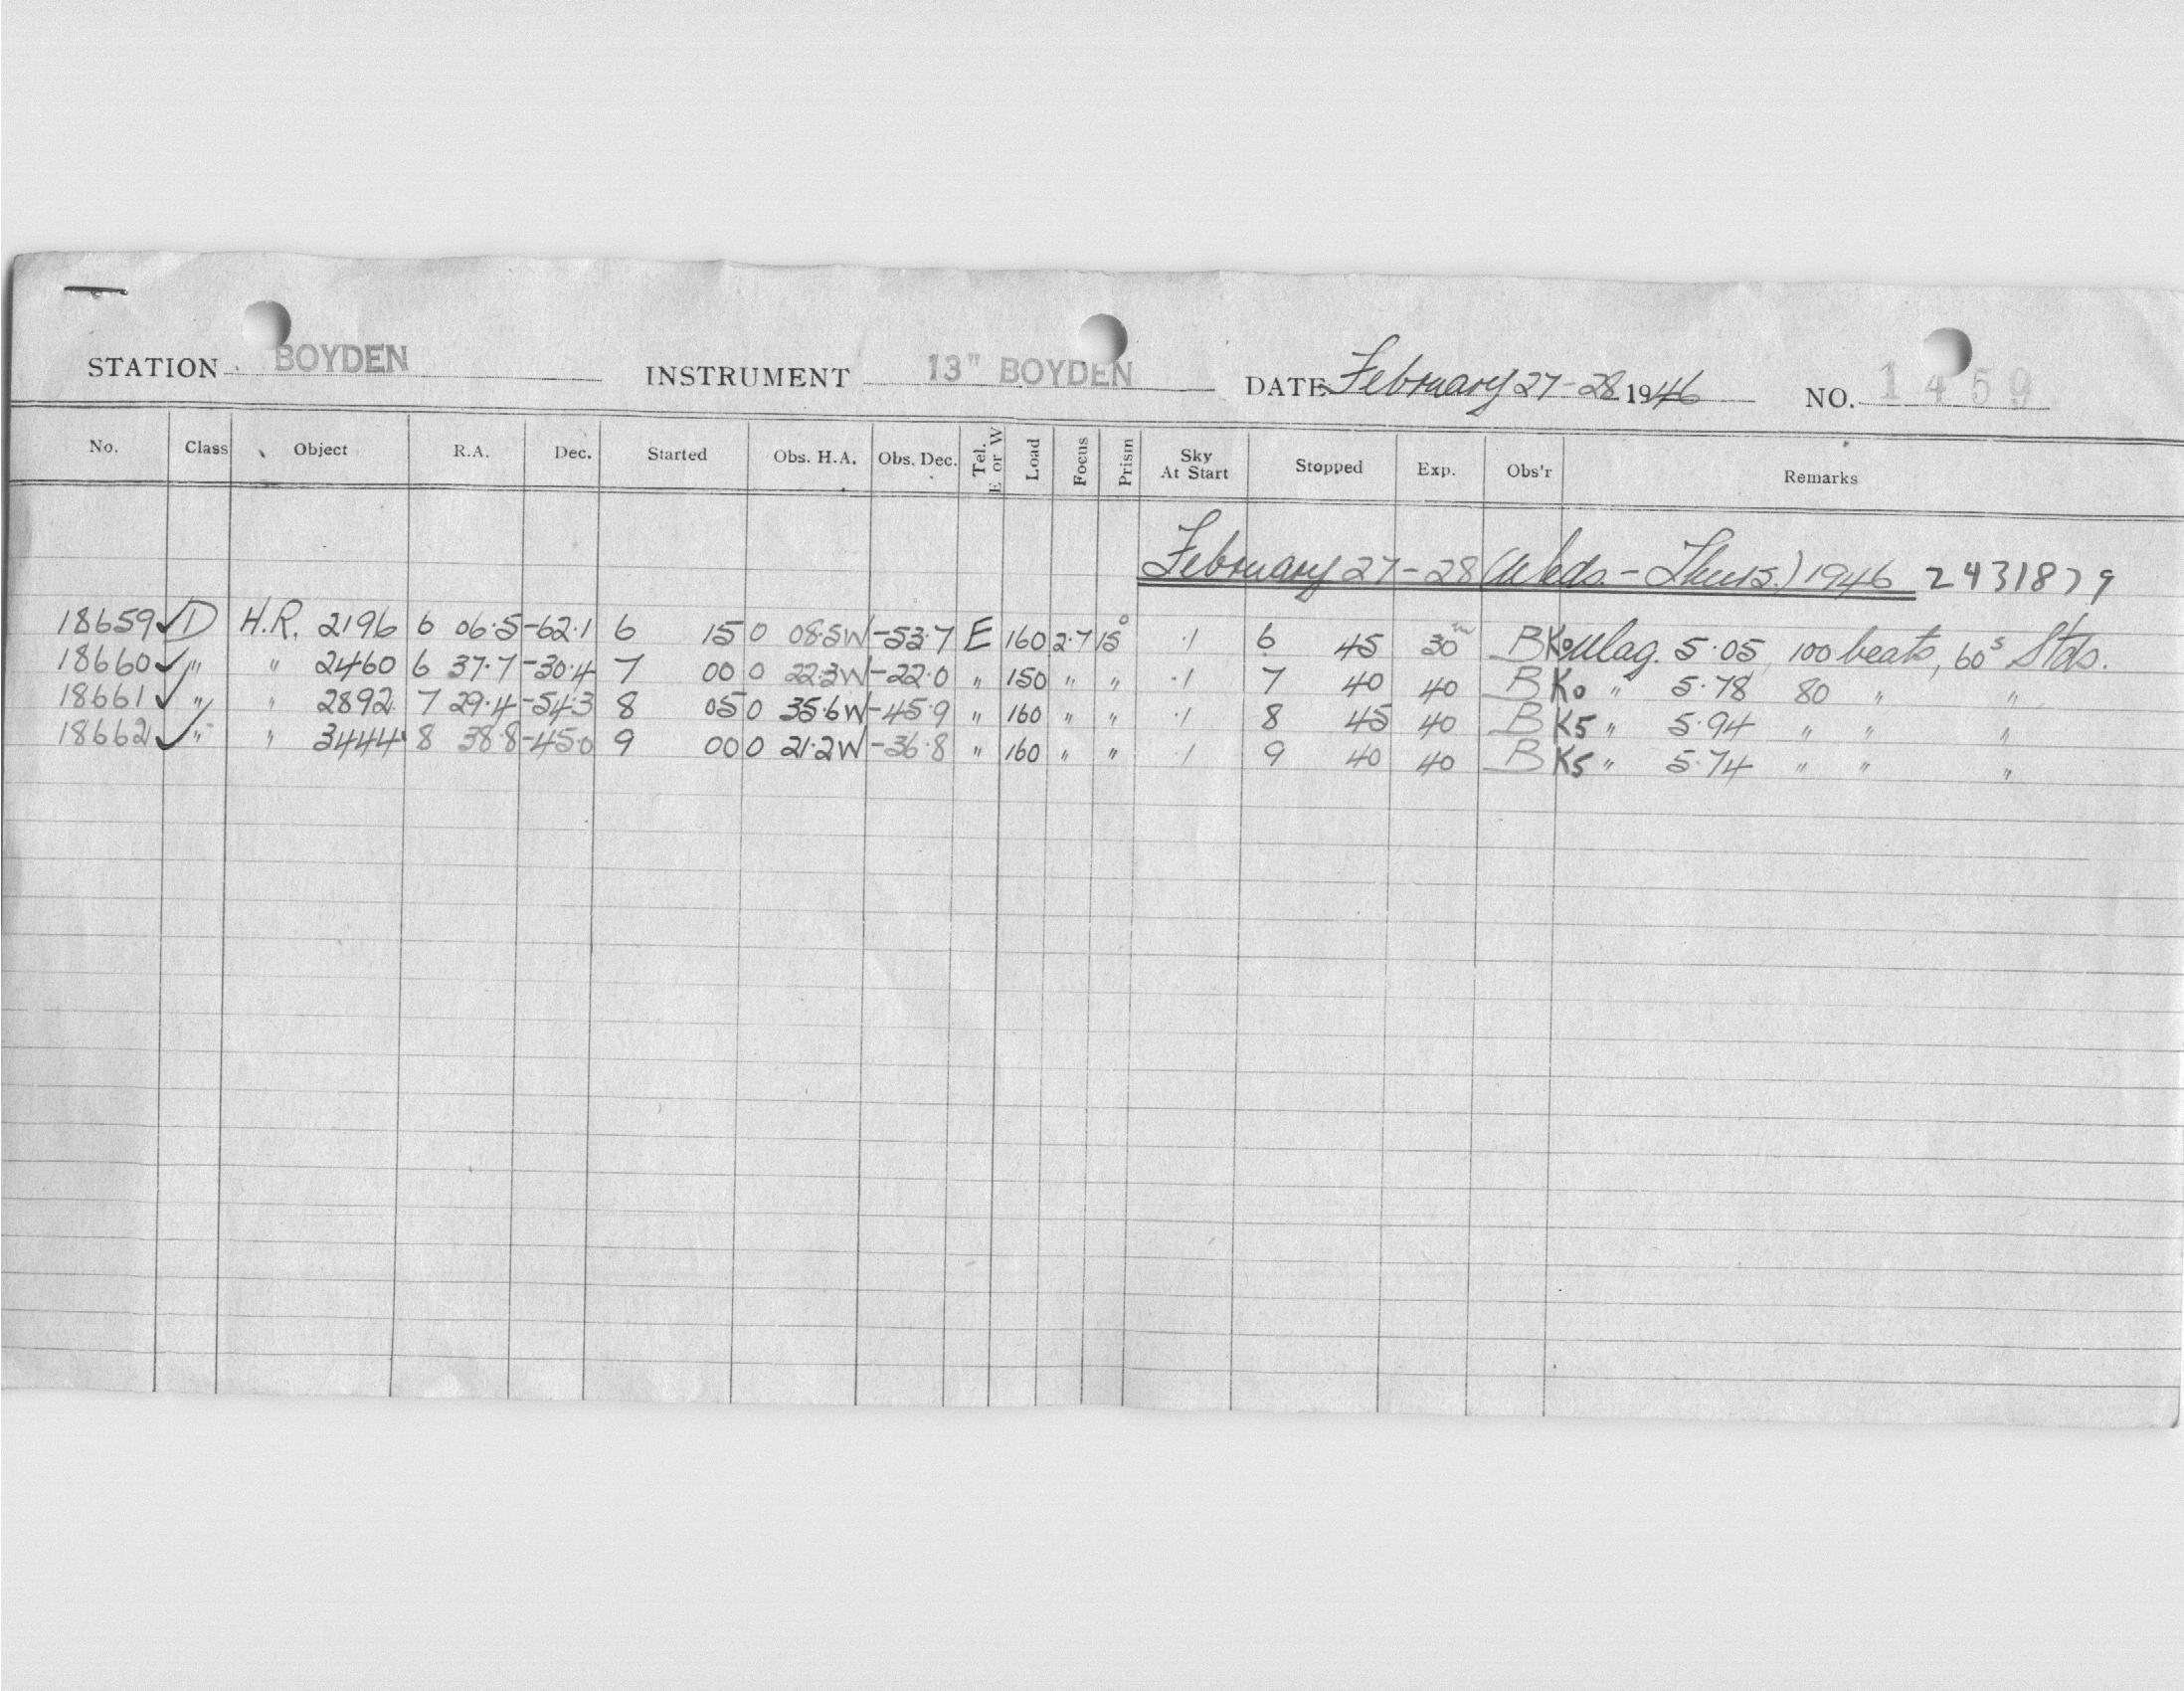 STATION BOYDEN INSTRUMENT 13" BOYDEN DATE February 27-28 1946 NO. 1459
No. Class Object R.A. Dec. Started Obs. H.A. Obs. Dec. Tel. E or W Load Focus Prism Sky At Start Stopped Exp. Obs'r Remarks
February 27-28 (Weds.-Thurs.) 1946 2431879
18659 ✓ D H.R. 2196 6 06.5 -62.1 6 15 0 08.5W -53.7 E 160 2.7 15° .1 6 45 30m B K0 Mag. 5.05 100 beats, 60s Stds.
18660 ✓ " " 2460 6 37.7 -30.4 7 00 0 22.3W -22.0 " 150 " " .1 7 40 40 B K0 " 5.78 80 " "
18661 ✓ " " 2892 7 29.4 -54.3 8 05 0 35.6W -45.9 " 160 " " .1 8 45 40 B K5 " 5.94 " " "
18662 ✓ " " 3444 8 38.8 -45.0 9 00 0 21.2W -36.8 " 160 " " .1 9 40 40 B K5 " 5.74 " " "